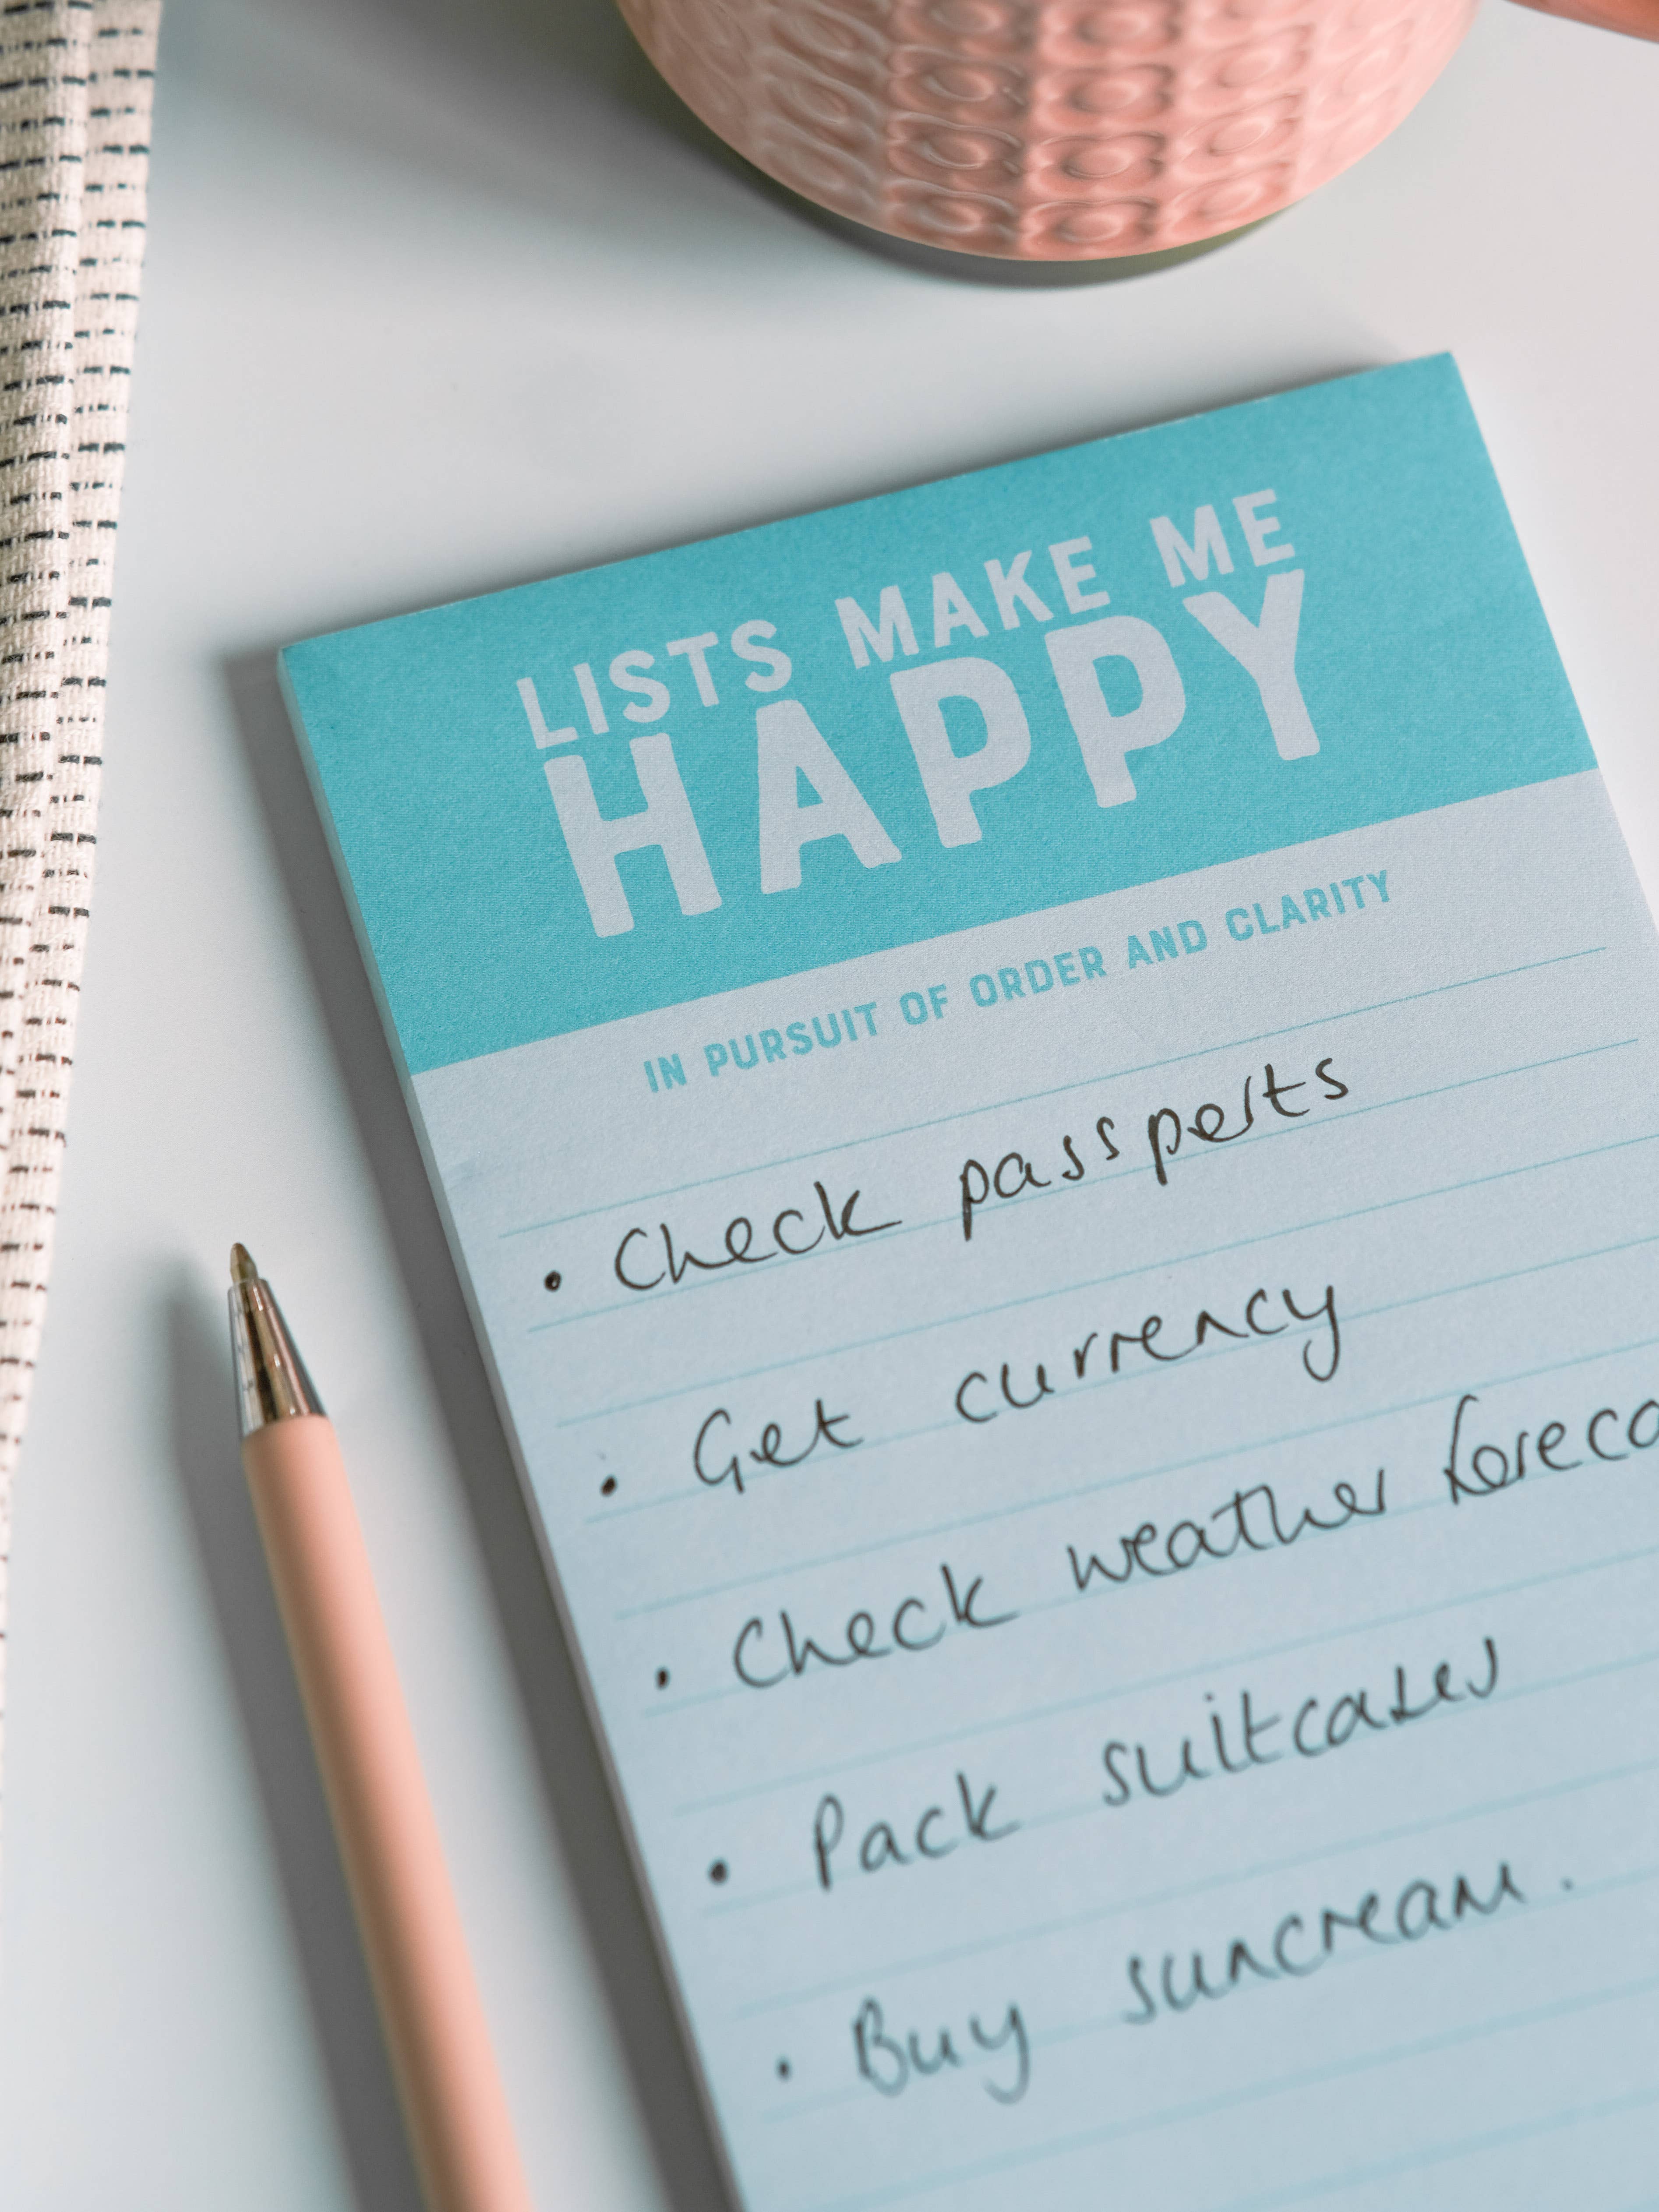 LISTS MAKE ME
HAPPY
IN PURSUIT OF ORDER AND CLARITY
• Check passports
• Get currency
• Check weather foreca
• Pack suitcases
• Buy suncream.